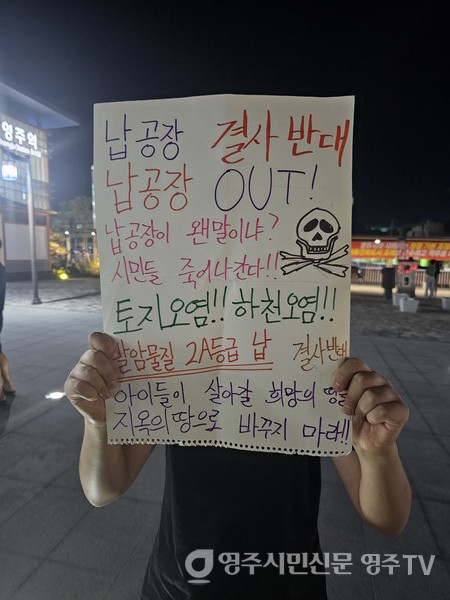 영주역
납공장 결사반대
납공장 OUT!
납공장이 왠말이냐?
시민들 죽어나간다!!
토지오염!! 하천오염!!
발암물질 2A등급 납 결사반대
아이들이 살아갈 희망의 땅을
지옥의 땅으로 바꾸지 마라!!
영주시민신문 영주TV